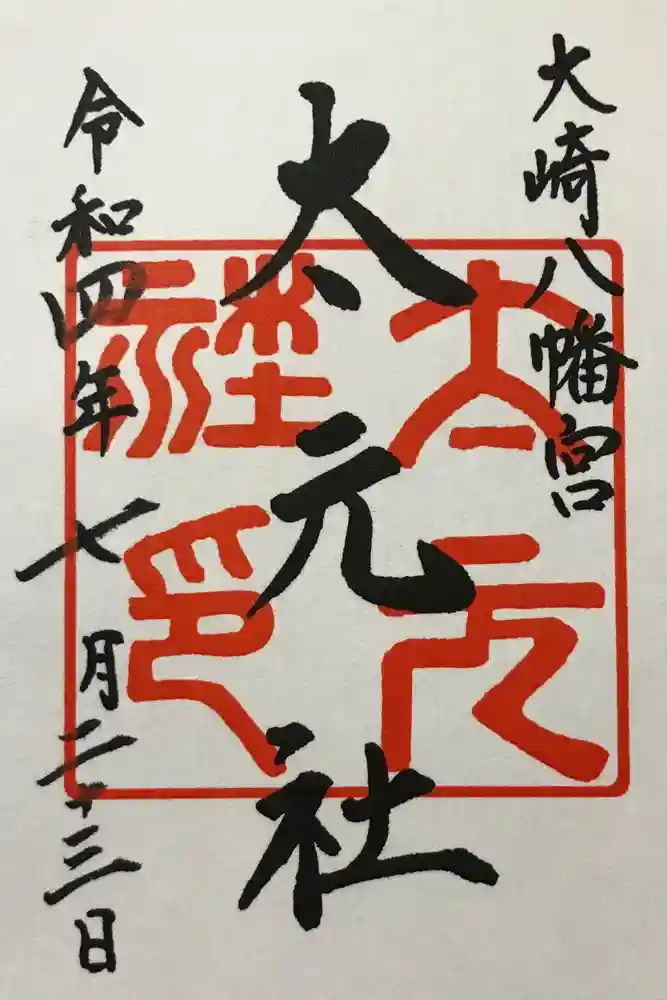 大崎八幡宮
太元社
太元社印
令和四年七月二十三日